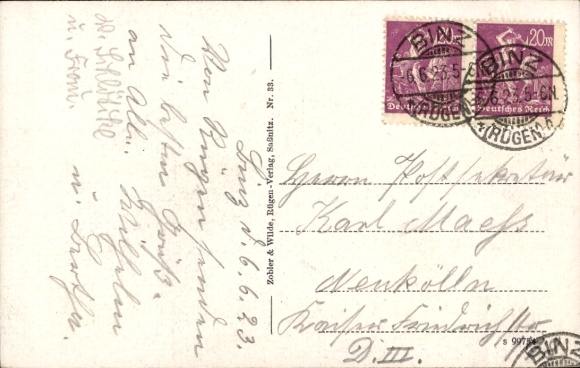 Binz d. 6.6.23.
Von Rügen senden
die besten Grüße
an Alle. Wilhelm
u. Bertha.
u. Frau.
Zobler & Wilde, Rügen-Verlag, Saßnitz. Nr. 33.
20M 20M
Deutsches Reich Deutsches Reich
BINZ
6.6.23.5-6N
*(RÜGEN)
BINZ
6.6.23.5-6N
*(RÜGEN)a
Herrn Postsekretär
Karl Maaß
Neukölln
Kaiser Friedrichstr
D. III.
S 9975
BINZ